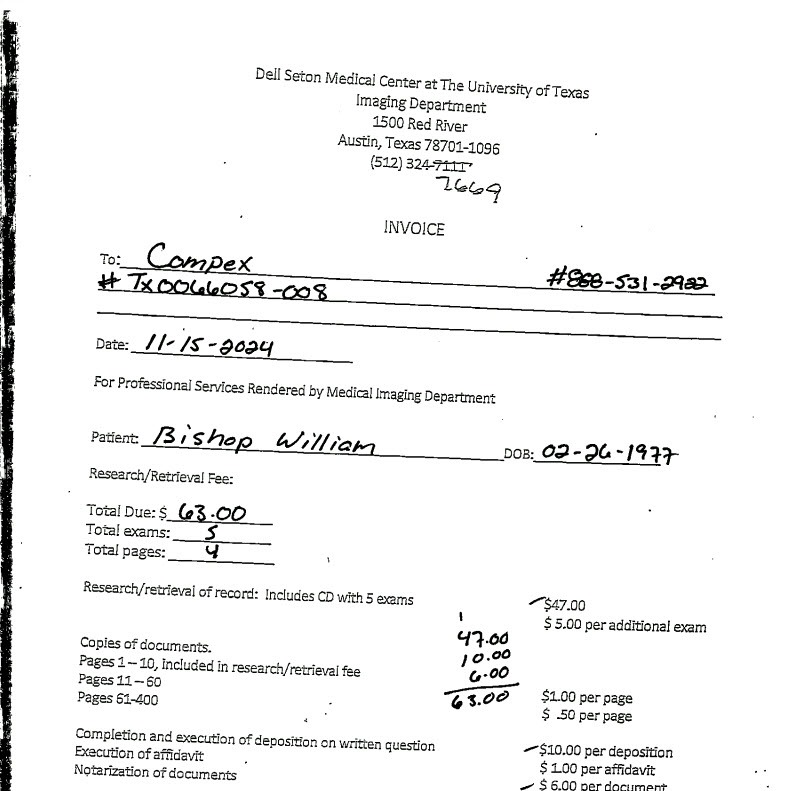 Dell Seton Medical Center at The University of Texas
Imaging Department
1500 Red River
Austin, Texas 78701-1096
(512) 324-7111
7669
INVOICE
To: Compex
# TX0066058-008 #868-531-2982
Date: 11-15-2024
For Professional Services Rendered by Medical Imaging Department
Patient: Bishop William DOB: 02-26-1977
Research/Retrieval Fee:
Total Due: $ 63.00
Total exams: 5
Total pages: 4
Research/retrieval of record: Includes CD with 5 exams $47.00
$ 5.00 per additional exam
1
47.00
Copies of documents.
10.00
Pages 1 – 10, included in research/retrieval fee
6.00
Pages 11 – 60 $1.00 per page
63.00
Pages 61-400 $ .50 per page
Completion and execution of deposition on written question $10.00 per deposition
Execution of affidavit $ 1.00 per affidavit
Notarization of documents $ 6.00 per document